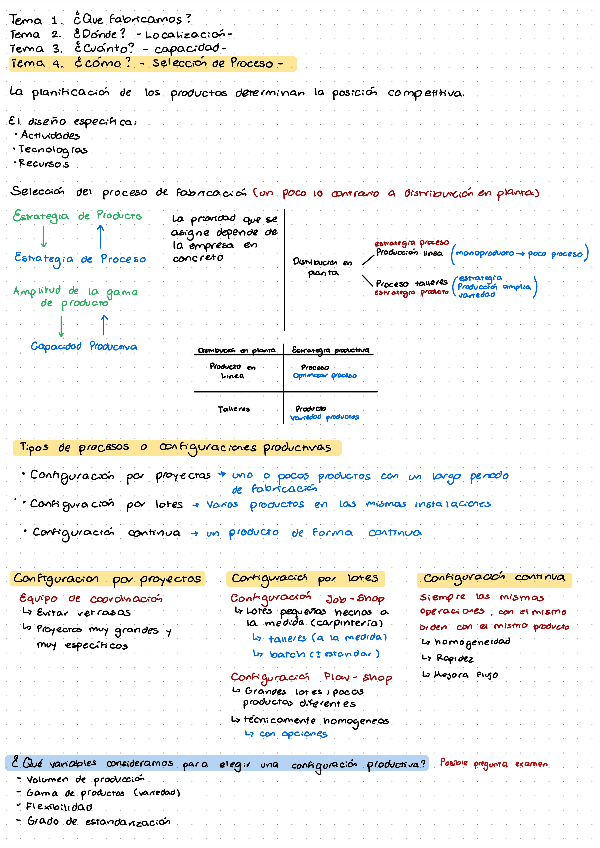 Tema 1. ¿Que Fabricamos?
Tema 2. ¿Dónde? - Localización -
Tema 3. ¿Cuánto? - capacidad -
Tema 4. ¿cómo? - Selección de Proceso -
La planificación de los productos determinan la posición competitiva.
El diseño especifica:
• Actividades
• Tecnologías
• Recursos
Selección del proceso de fabricación (un poco lo contrario a distribución en planta)
Estrategia de Producto
Estrategia de Proceso
Amplitud de la gama
de producto
Capacidad Productiva
La prioridad que se
asigne depende de
la empresa en
concreto
Distribución en
planta
estrategia proceso
Producción linea (monoproducto → poco proceso)
Proceso talleres
estrategia producto
(estrategia
Producción amplia
variedad)
Distribución en planta | Estrategia productiva
Producto en
Linea
Proceso
Optimizar proceso
Talleres
Producto
Variedad productos
Tipos de procesos o configuraciones productivas
• Configuración por proyectas → uno o pocos productos con un largo periodo
de fabricación
• Configuración por lotes → Varios productos en las mismas instalaciones
• Configuración continua → un producto de forma continua
Configuración por proyectos
Equipo de coordinación
↳ Evitar retrasas
↳ Proyectos muy grandes y
muy específicos
Configuración por lotes
Configuración Job-Shop
↳ Lotes pequeñas hechos a
la medida (carpintería)
↳ talleres (a la medida)
↳ batch (± estandar)
Configuración Flow-Shop
↳ Grandes lotes, pocos
productos diferentes
↳ técnicamente homogeneas
↳ con opciones
Configuración continua
Siempre las mismas
operaciones, con el mismo
orden con el mismo producto
↳ homogeneidad
↳ Rapidez
↳ Mejora flujo
¿Qué variables consideramos para elegir una configuración productiva? Posible pregunta examen
- Volumen de producción
- Gama de productos (variedad)
- Flexibilidad
- Grado de estandarización